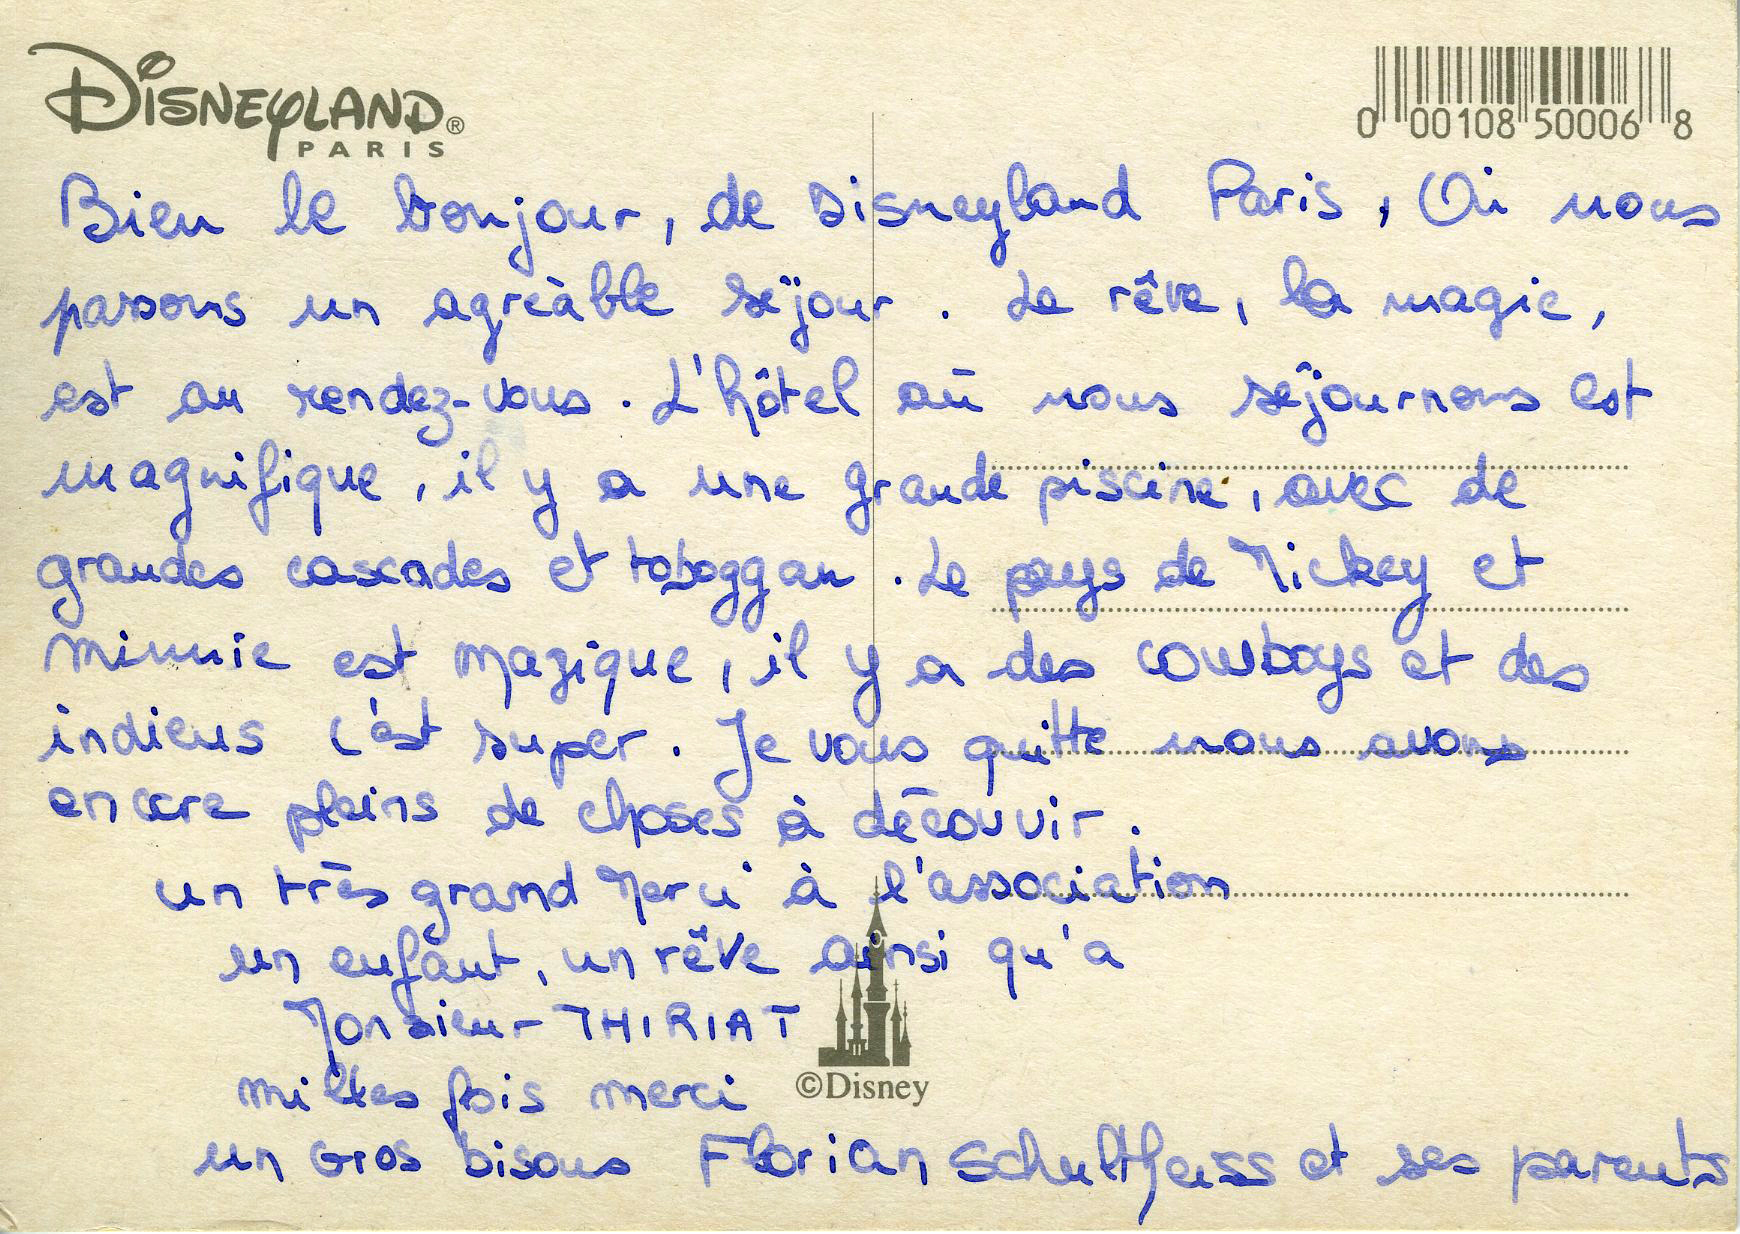 DISNEYLAND®
PARIS
0 00108 50006 8
Bien le bonjour, de Disneyland Paris, Où nous
passons un agréàble séjour. Le rêve, la magie,
est au rendez-vous. L'hôtel où nous séjournons est
magnifique, il y a une grande piscine, avec de
grandes cascades et toboggan. Le pays de Mickey et
minnie est magique, il y a des cowboys et des
indiens c'est super. Je vous quitte nous avons
encore pleins de choses à découvir.
un très grand Merci à l'association
un enfant, un rêve ainsi qu'a
Monsieur THIRIAT
milles fois merci
©Disney
un Gros bisous Florian Schultheiss et ses parents